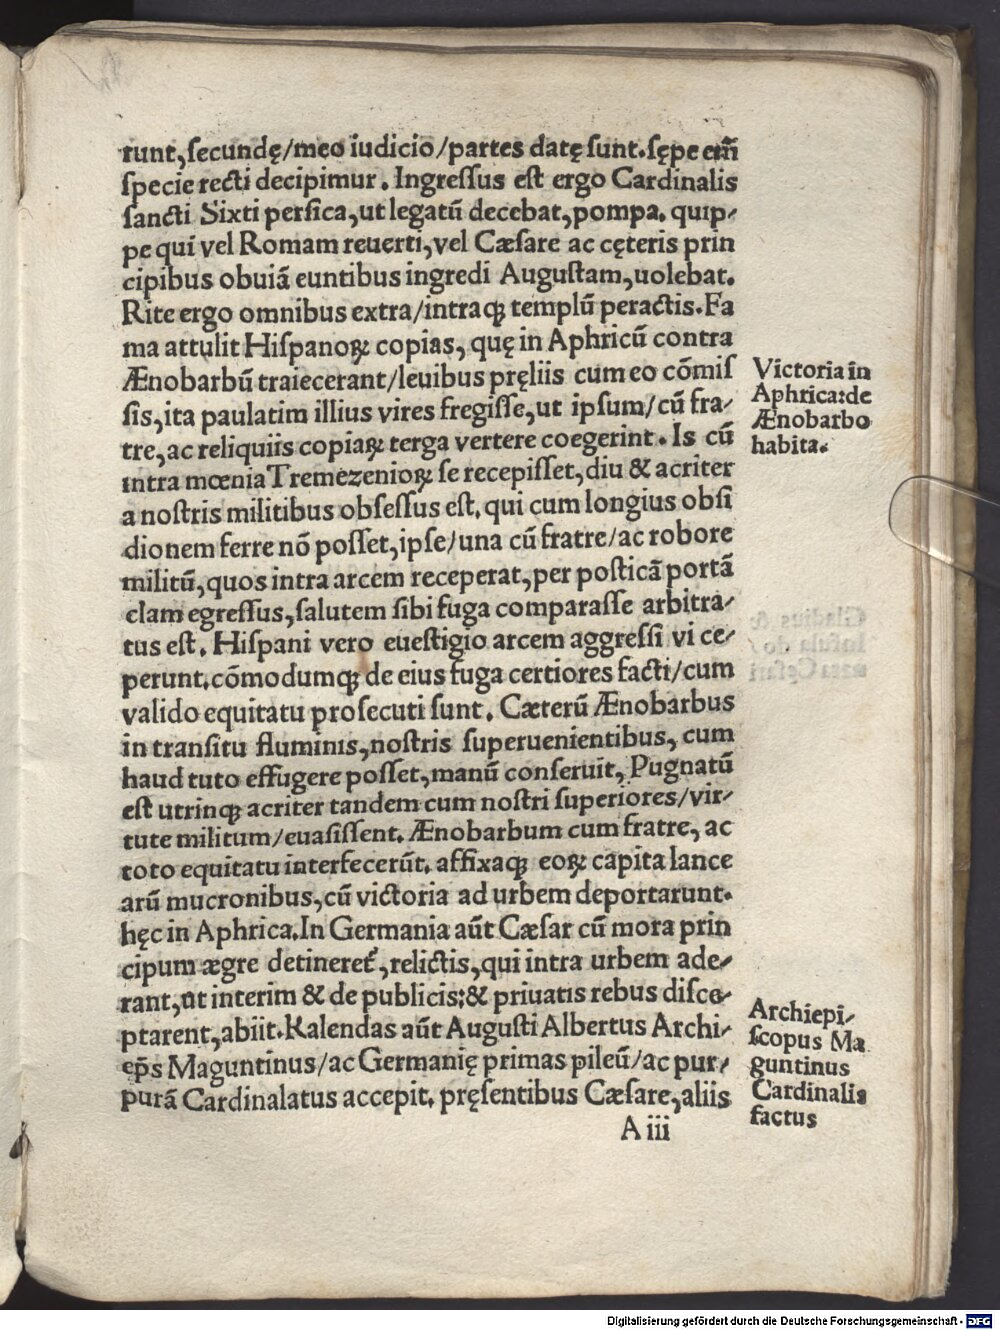 runt, secundę/meo iudicio/partes datę sunt. sępe em̃
specie recti decipimur. Ingressus est ergo Cardinalis
sancti Sixti persica, ut legatũ decebat, pompa. quip-
pe qui vel Romam reuerti, vel Cæsare ac cęteris prin
cipibus obuiã euntibus ingredi Augustam, uolebat.
Rite ergo omnibus extra/intraqꝫ templũ peractis. Fa
ma attulit Hispanoꝝ copias, quę in Aphricũ contra
Ænobarbũ traiecerant/leuibus pręliis cum eo cõmis
sis, ita paulatim illius vires fregisse, ut ipsum/cũ fra-
tre, ac reliquiis copiaꝝ terga vertere coegerint. Is cũ
intra mœnia Tremezenioꝝ se recepisset, diu & acriter
a nostris militibus obsessus est. qui cum longius obsi
dionem ferre nõ posset, ipse/una cũ fratre/ac robore
militũ, quos intra arcem receperat, per posticã portã
clam egressus, salutem sibi fuga comparasse arbitra-
tus est. Hispani vero euestigio arcem aggressi vi ce-
perunt. cõmodumqꝫ de eius fuga certiores facti/cum
valido equitatu prosecuti sunt. Cæterũ Ænobarbus
in transitu fluminis, nostris superuenientibus, cum
haud tuto effugere posset, manũ conseruit, Pugnatũ
est utrinqꝫ acriter tandem cum nostri superiores/vir-
tute militum/euasissent. Ænobarbum cum fratre, ac
toto equitatu interfecerũt. affixaqꝫ eoꝝ capita lance
arũ mucronibus, cũ victoria ad urbem deportarunt.
hęc in Aphrica. In Germania aũt Cæsar cũ mora prin
cipum ægre detineret̃, relictis, qui intra urbem ade-
rant, ut interim & de publicis: & priuatis rebus disce-
ptarent, abiit. Kalendas aũt Augusti Albertus Archi-
ep̃s Maguntinus/ac Germanię primas pileũ/ac pur-
purã Cardinalatus accepit. pręsentibus Cæsare, aliis
A iii
Victoria in
Aphrica: de
Ænobarbo
habita.
Archiepi-
scopus Ma
guntinus
Cardinalis
factus
Digitalisierung gefördert durch die Deutsche Forschungsgemeinschaft - DFG